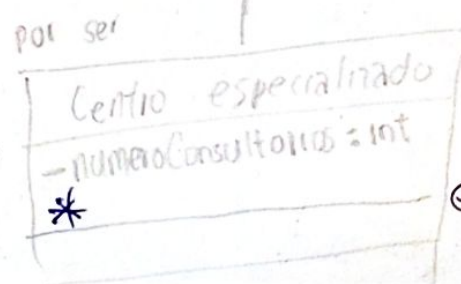 por ser
Centro especializado
- numeroConsultorios : int
*